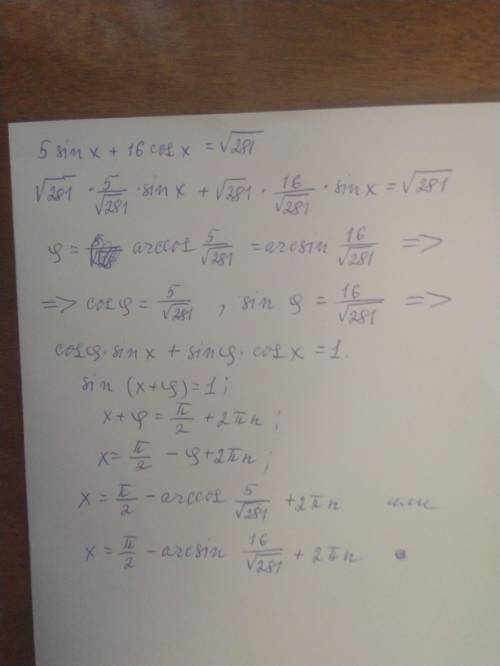 5 sin x + 16 cos x = √281
√281 · 5/√281 · sin x + √281 · 16/√281 · sin x = √281
φ = arccos 5/√281 = arcsin 16/√281 =>
=> cos φ = 5/√281 , sin φ = 16/√281 =>
cos φ · sin x + sin φ · cos x = 1.
sin (x+φ) = 1;
x + φ = π/2 + 2πn;
x = π/2 - φ + 2πn;
x = π/2 - arccos 5/√281 + 2πn или
x = π/2 - arcsin 16/√281 + 2πn